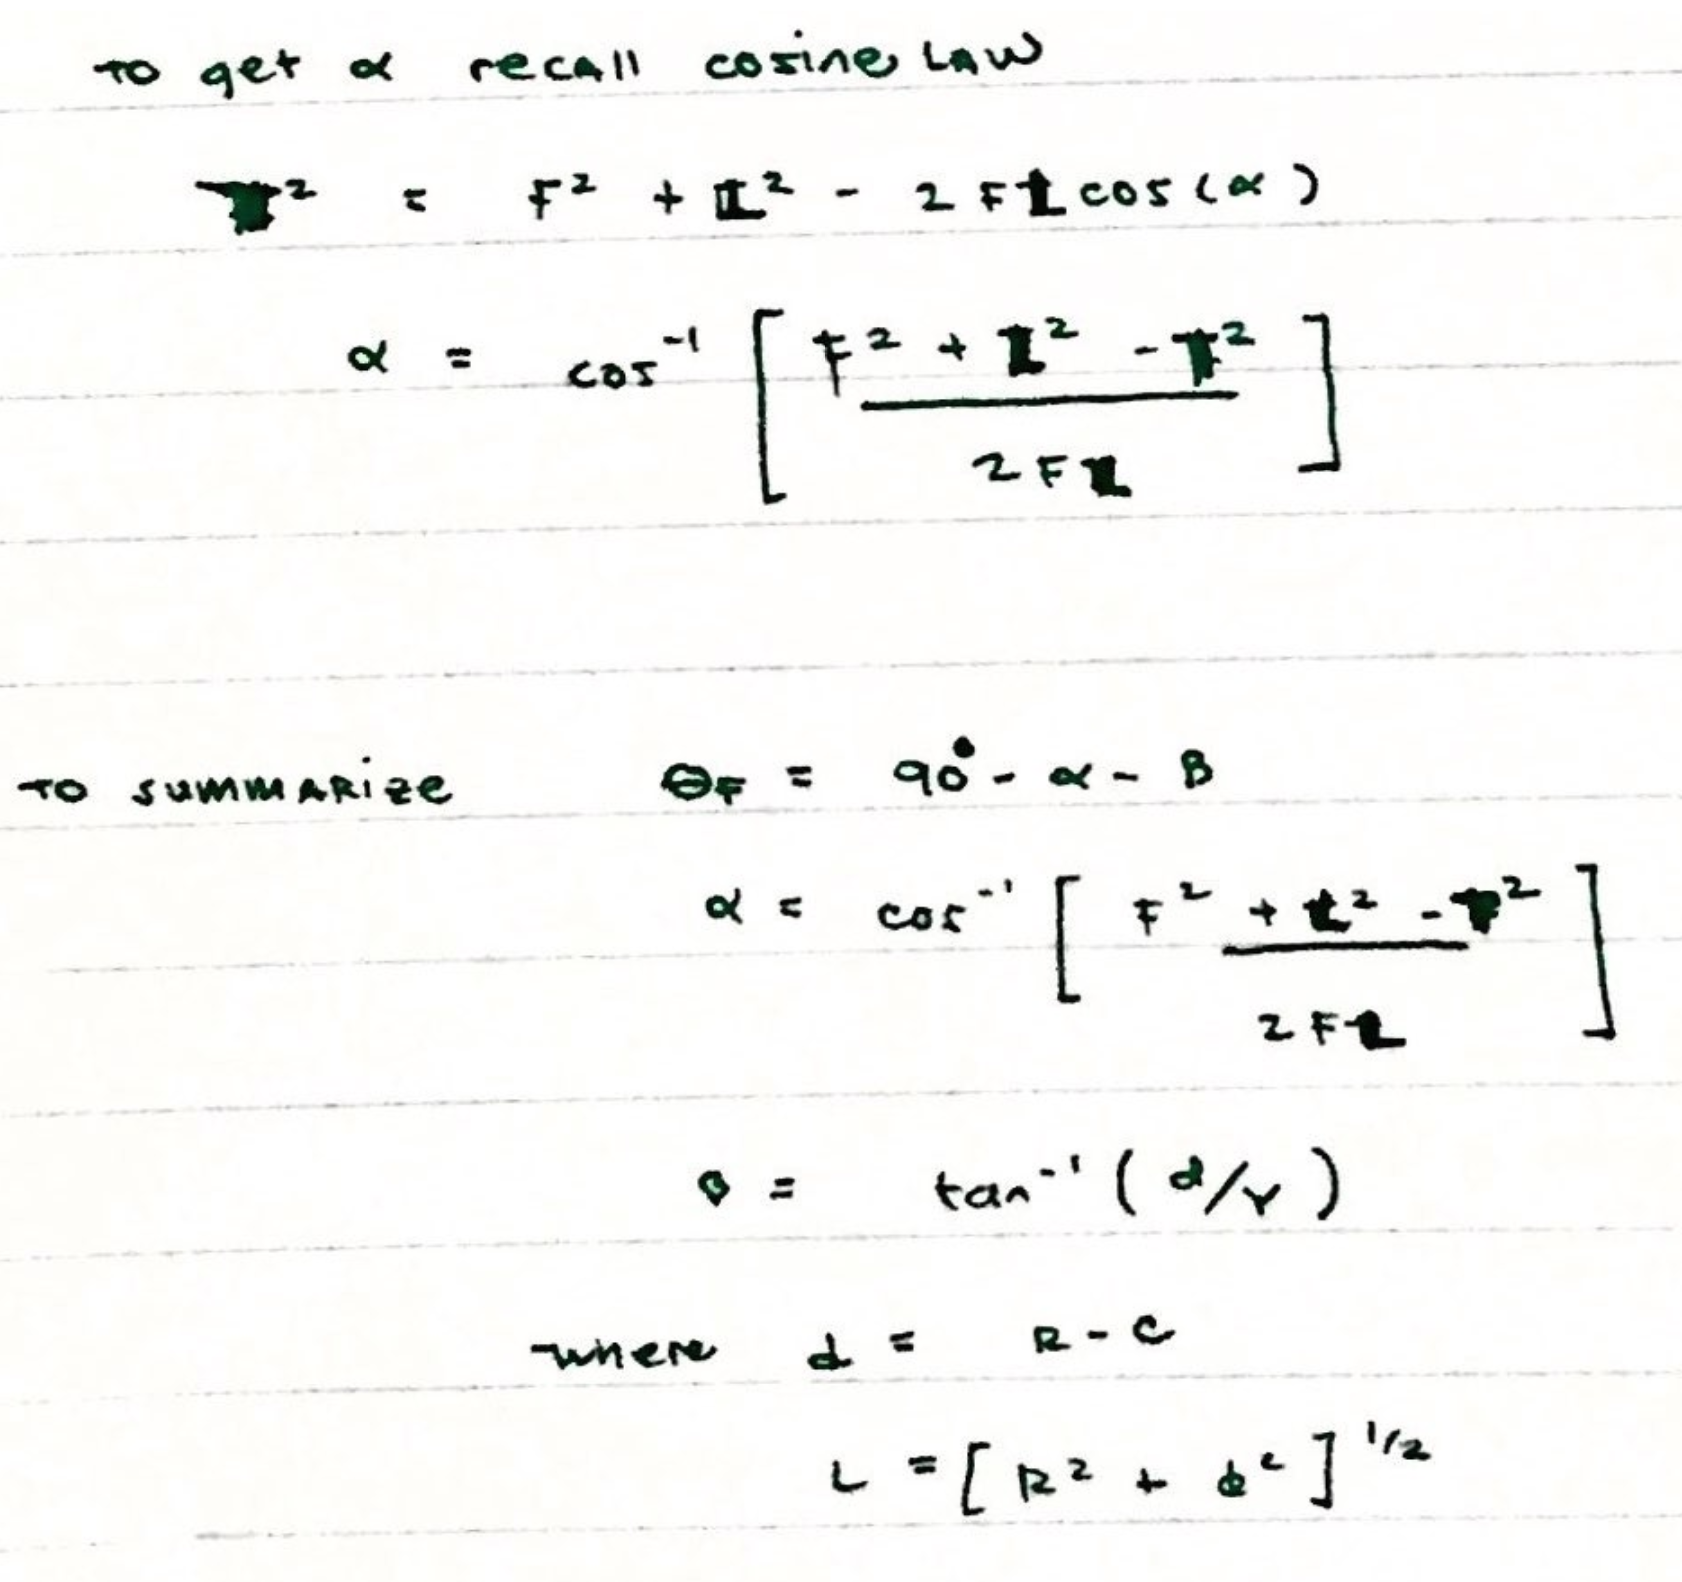 TO get α recall cosine LAW
T² = F² + L² - 2 F L cos(α)
α = cos⁻¹ [ F² + L² - T² / 2 F L ]
TO SUMMARIZE θF = 90° - α - B
α = cos⁻¹ [ F² + L² - T² / 2 F L ]
B = tan⁻¹ ( d/r )
where d = R - C
L = [ R² + d² ] 1/2